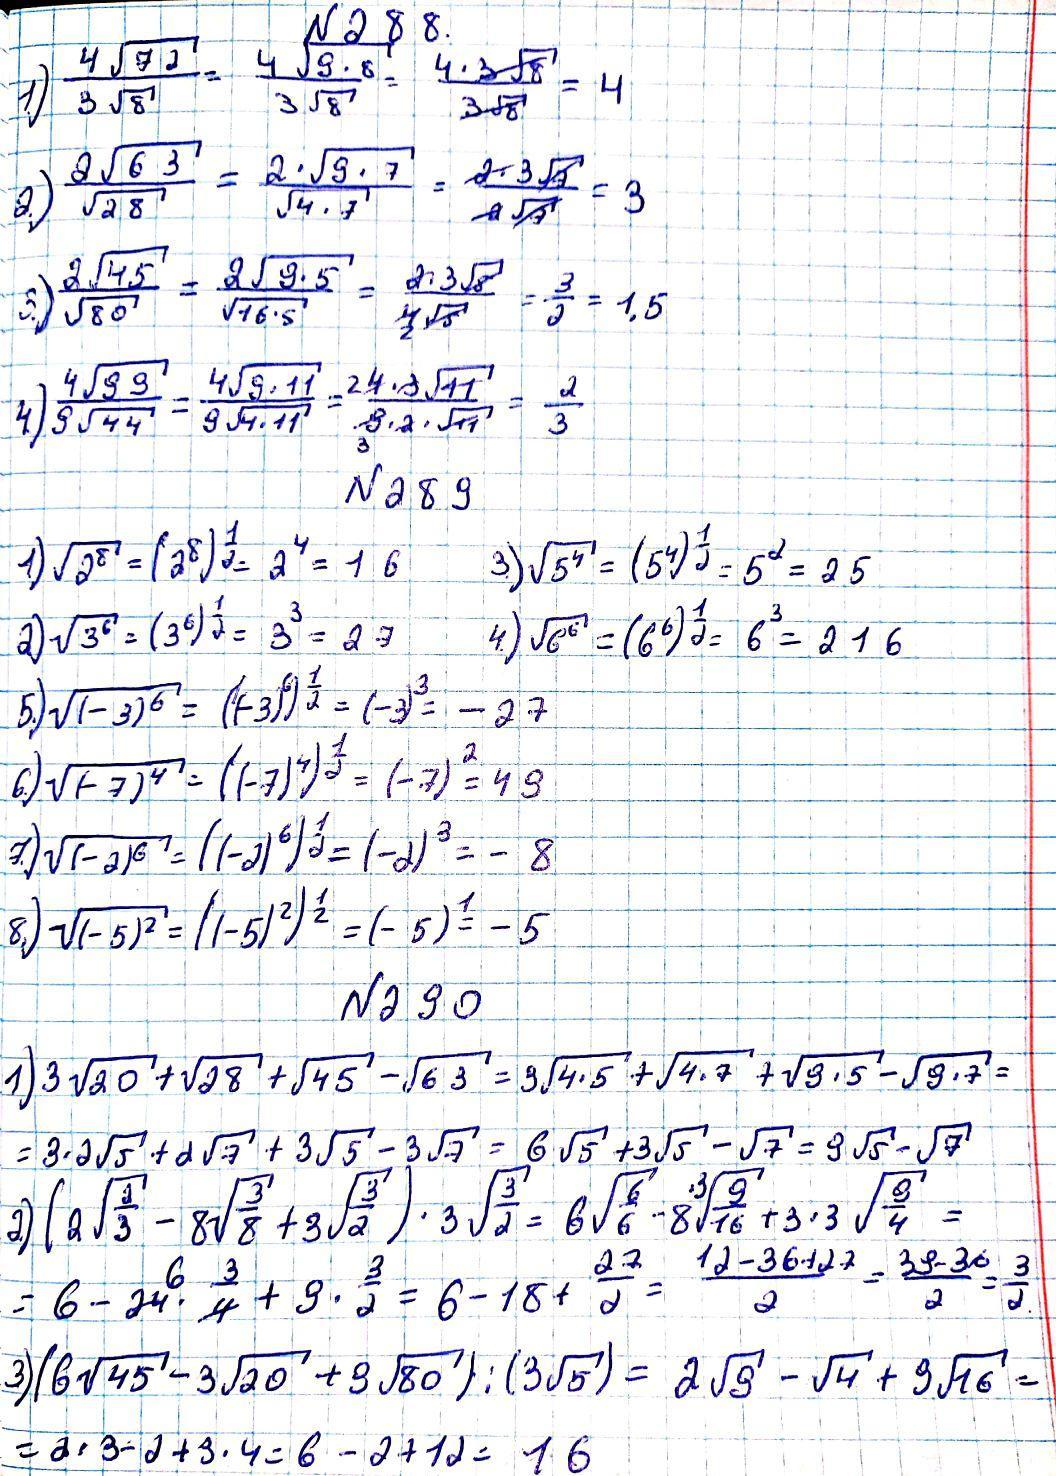 N288.
1) 4√72 / 3√8 = 4√9·8 / 3√8 = 4·3√8 / 3√8 = 4
2.) 2√63 / √28 = 2·√9·7 / √4·7 = 2·3√7 / 2√7 = 3
3.) 2√45 / √80 = 2√9·5 / √16·5 = 2·3√8 / 4√5 2 = 3/2 = 1,5
4.) 4√99 / 9√44 = 4√9·11 / 9√4·11 = 2 4·3√11 / 9·2·√11 3 = 2/3
N289
1) √2⁸ = (2⁸)^1/2 = 2⁴ = 16 3.) √5⁴ = (5⁴)^1/2 = 5² = 25
2) √3⁶ = (3⁶)^1/2 = 3³ = 27 4.) √6⁶ = (6⁶)^1/2 = 6³ = 216
5.) √(-3)⁶ = ((-3)⁶)^1/2 = (-3)³ = -27
6.) √(-7)⁴ = ((-7)⁴)^1/2 = (-7)² = 49
7.) √(-2)⁶ = ((-2)⁶)^1/2 = (-2)³ = -8
8.) √(-5)² = ((-5)²)^1/2 = (-5)¹ = -5
N290
1) 3√20 + √28 + √45 - √63 = 3√4·5 + √4·7 + √9·5 - √9·7 =
= 3·2√5 + 2√7 + 3√5 - 3√7 = 6√5 + 3√5 - √7 = 9√5 - √7
2) (2√2/3 - 8√3/8 + 3√3/2) · 3√3/2 = 6√6/6 - 8·3√9/16 + 3·3√9/4 =
= 6 - 24 6 · 3/4 + 9 · 3/2 = 6 - 18 + 27/2 = 12-36+27 / 2 = 39-36 / 2 = 3/2.
3) (6√45 - 3√20 + 9√80) : (3√5) = 2√9 - √4 + 3√16 =
= 2·3 - 2 + 3·4 = 6 - 2 + 12 = 16